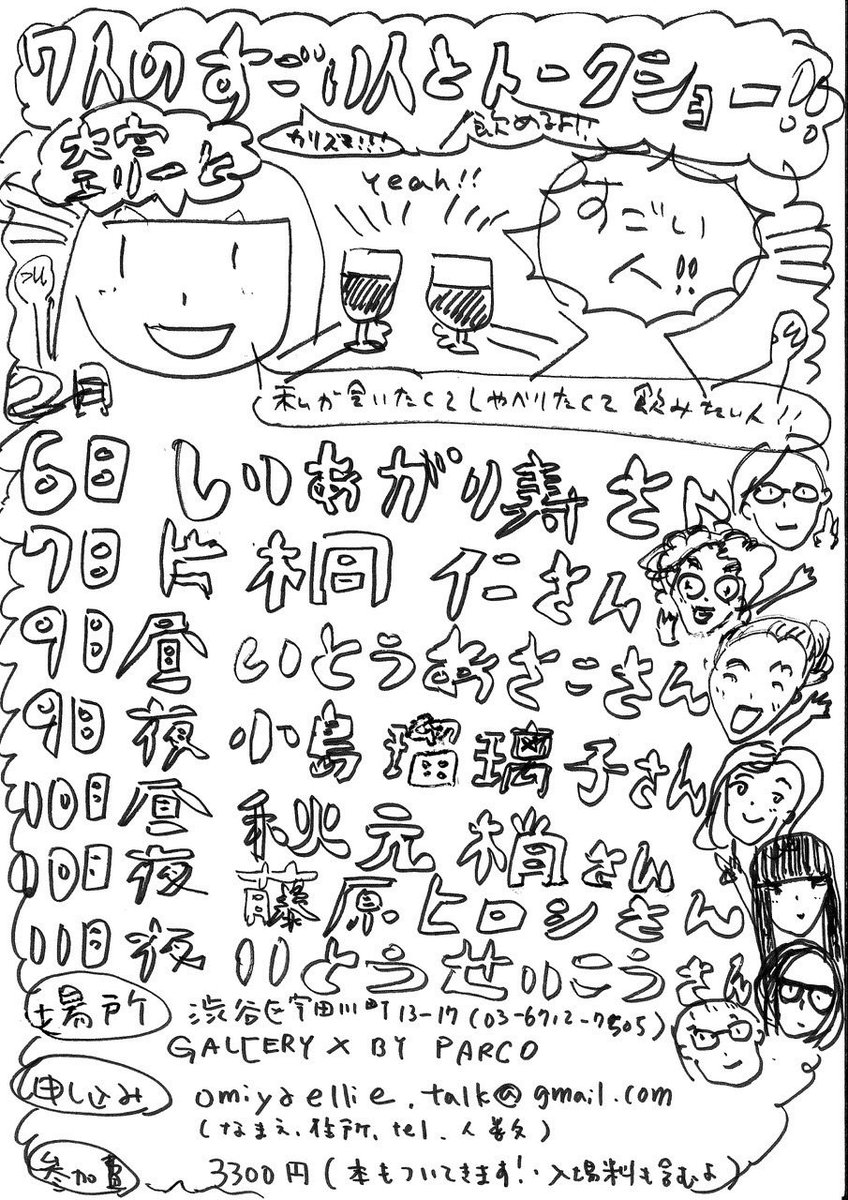 7人のすごい人とトークショー!!
カリズマ!!!
飲めるよ!!
大宮エリーと
yeah!!
すごい
人!!
私が会いたくてしゃべりたくて飲みたい人!!
2月
6日 しりあがり寿さん
7日 片桐 仁さん
9日 昼 いとうあさこさん
9日 夜 小島瑠璃子さん
10日 昼 秋元 梢さん
10日 夜 藤原ヒロシさん
11日 夜 いとうせいこうさん
場所 渋谷区宇田川町13-17(03-6712-7505)
GALLERY X BY PARCO
申し込み omiyaellie.talk@gmail.com
(なまえ、住所、tel、人数)
参加費 3300円(本もついてきます!・入場料も含むよ)